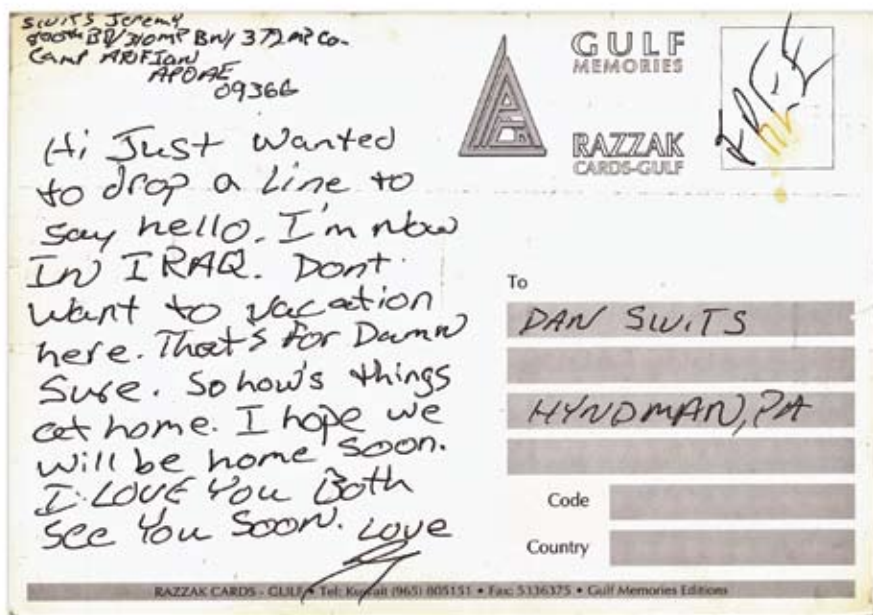 Swits Jeremy
800th BD/310 MP Bn/ 372 MP Co.
Camp ARIFJAN
APO AE
09366
Hi Just wanted
to drop a line to
say hello. I'm now
IN IRAQ. Dont
want to vacation
here. That's for Damn
Sure. So how's things
at home. I hope we
will be home soon.
I LOVE You Both
See You Soon. Love
J
GULF
MEMORIES
RAZZAK
CARDS-GULF
FREE
To
DAN SWITS
HYNDMAN, PA
Code
Country
RAZZAK CARDS - GULF • Tel: Kuwait (965) 805151 • Fax: 5336375 • Gulf Memories Editions